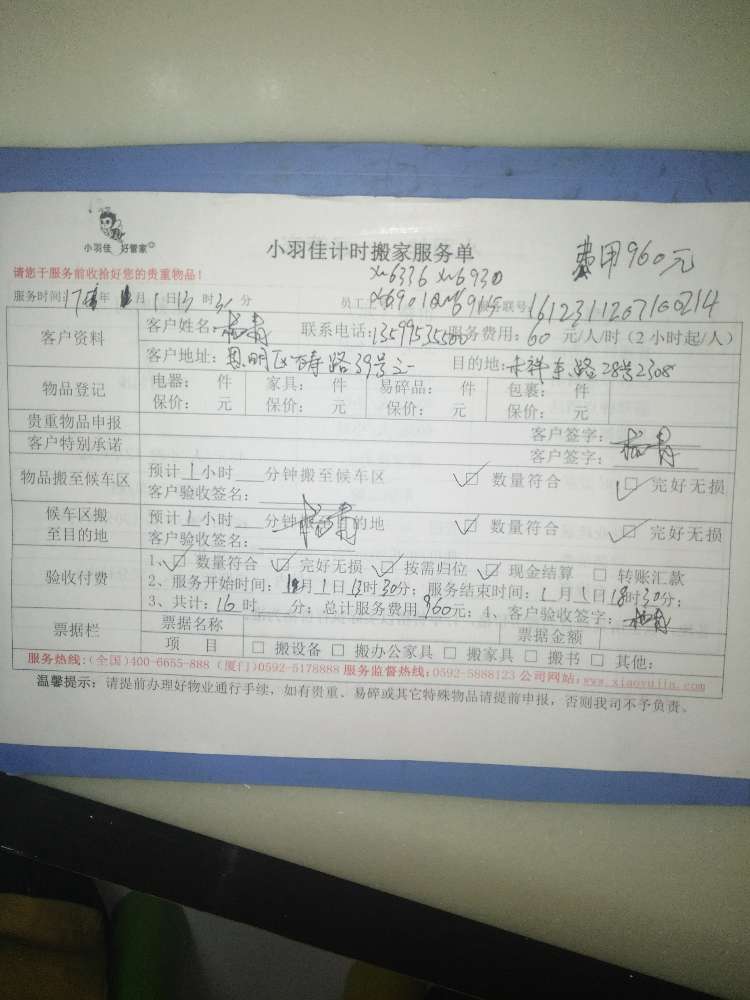 小羽佳 好管家
小羽佳计时搬家服务单
费用960元
请您于服务前收拾好您的贵重物品！
xu6336 xu6930
服务时间:17年 1月1日13时3分 员工 联号:1612311207100214
客户资料 客户姓名: 联系电话:13599535500 服务费用:60 元/人/时（2小时起/人）
客户地址:思明区 路39号之一 目的地: 祥东路28号2308
物品登记 电器: 件 家具: 件 易碎品: 件 包裹: 件
保价: 元 保价: 元 保价: 元 保价: 元
贵重物品申报 客户签字:
客户特别承诺 客户签字:
物品搬至候车区 预计1小时 分钟搬至候车区 数量符合 完好无损
客户验收签名:
候车区搬至目的地 预计1小时 分钟搬至目的地 数量符合 完好无损
客户验收签名:
验收付费 1、数量符合 完好无损 按需归位 现金结算 转账汇款
2、服务开始时间: 1月1日13时30分; 服务结束时间: 1月1日18时30分;
3、共计:16时 分; 总计服务费用960元; 4、客户验收签字:
票据栏 票据名称 票据金额
项 目 搬设备 搬办公家具 搬家具 搬书 其他:
服务热线:(全国)400-6655-888 (厦门)0592-5178888 服务监督热线:0592-5888123 公司网站:www.xiaoyujia.com
温馨提示: 请提前办理好物业通行手续，如有贵重、易碎或其它特殊物品请提前申报，否则我司不予负责。